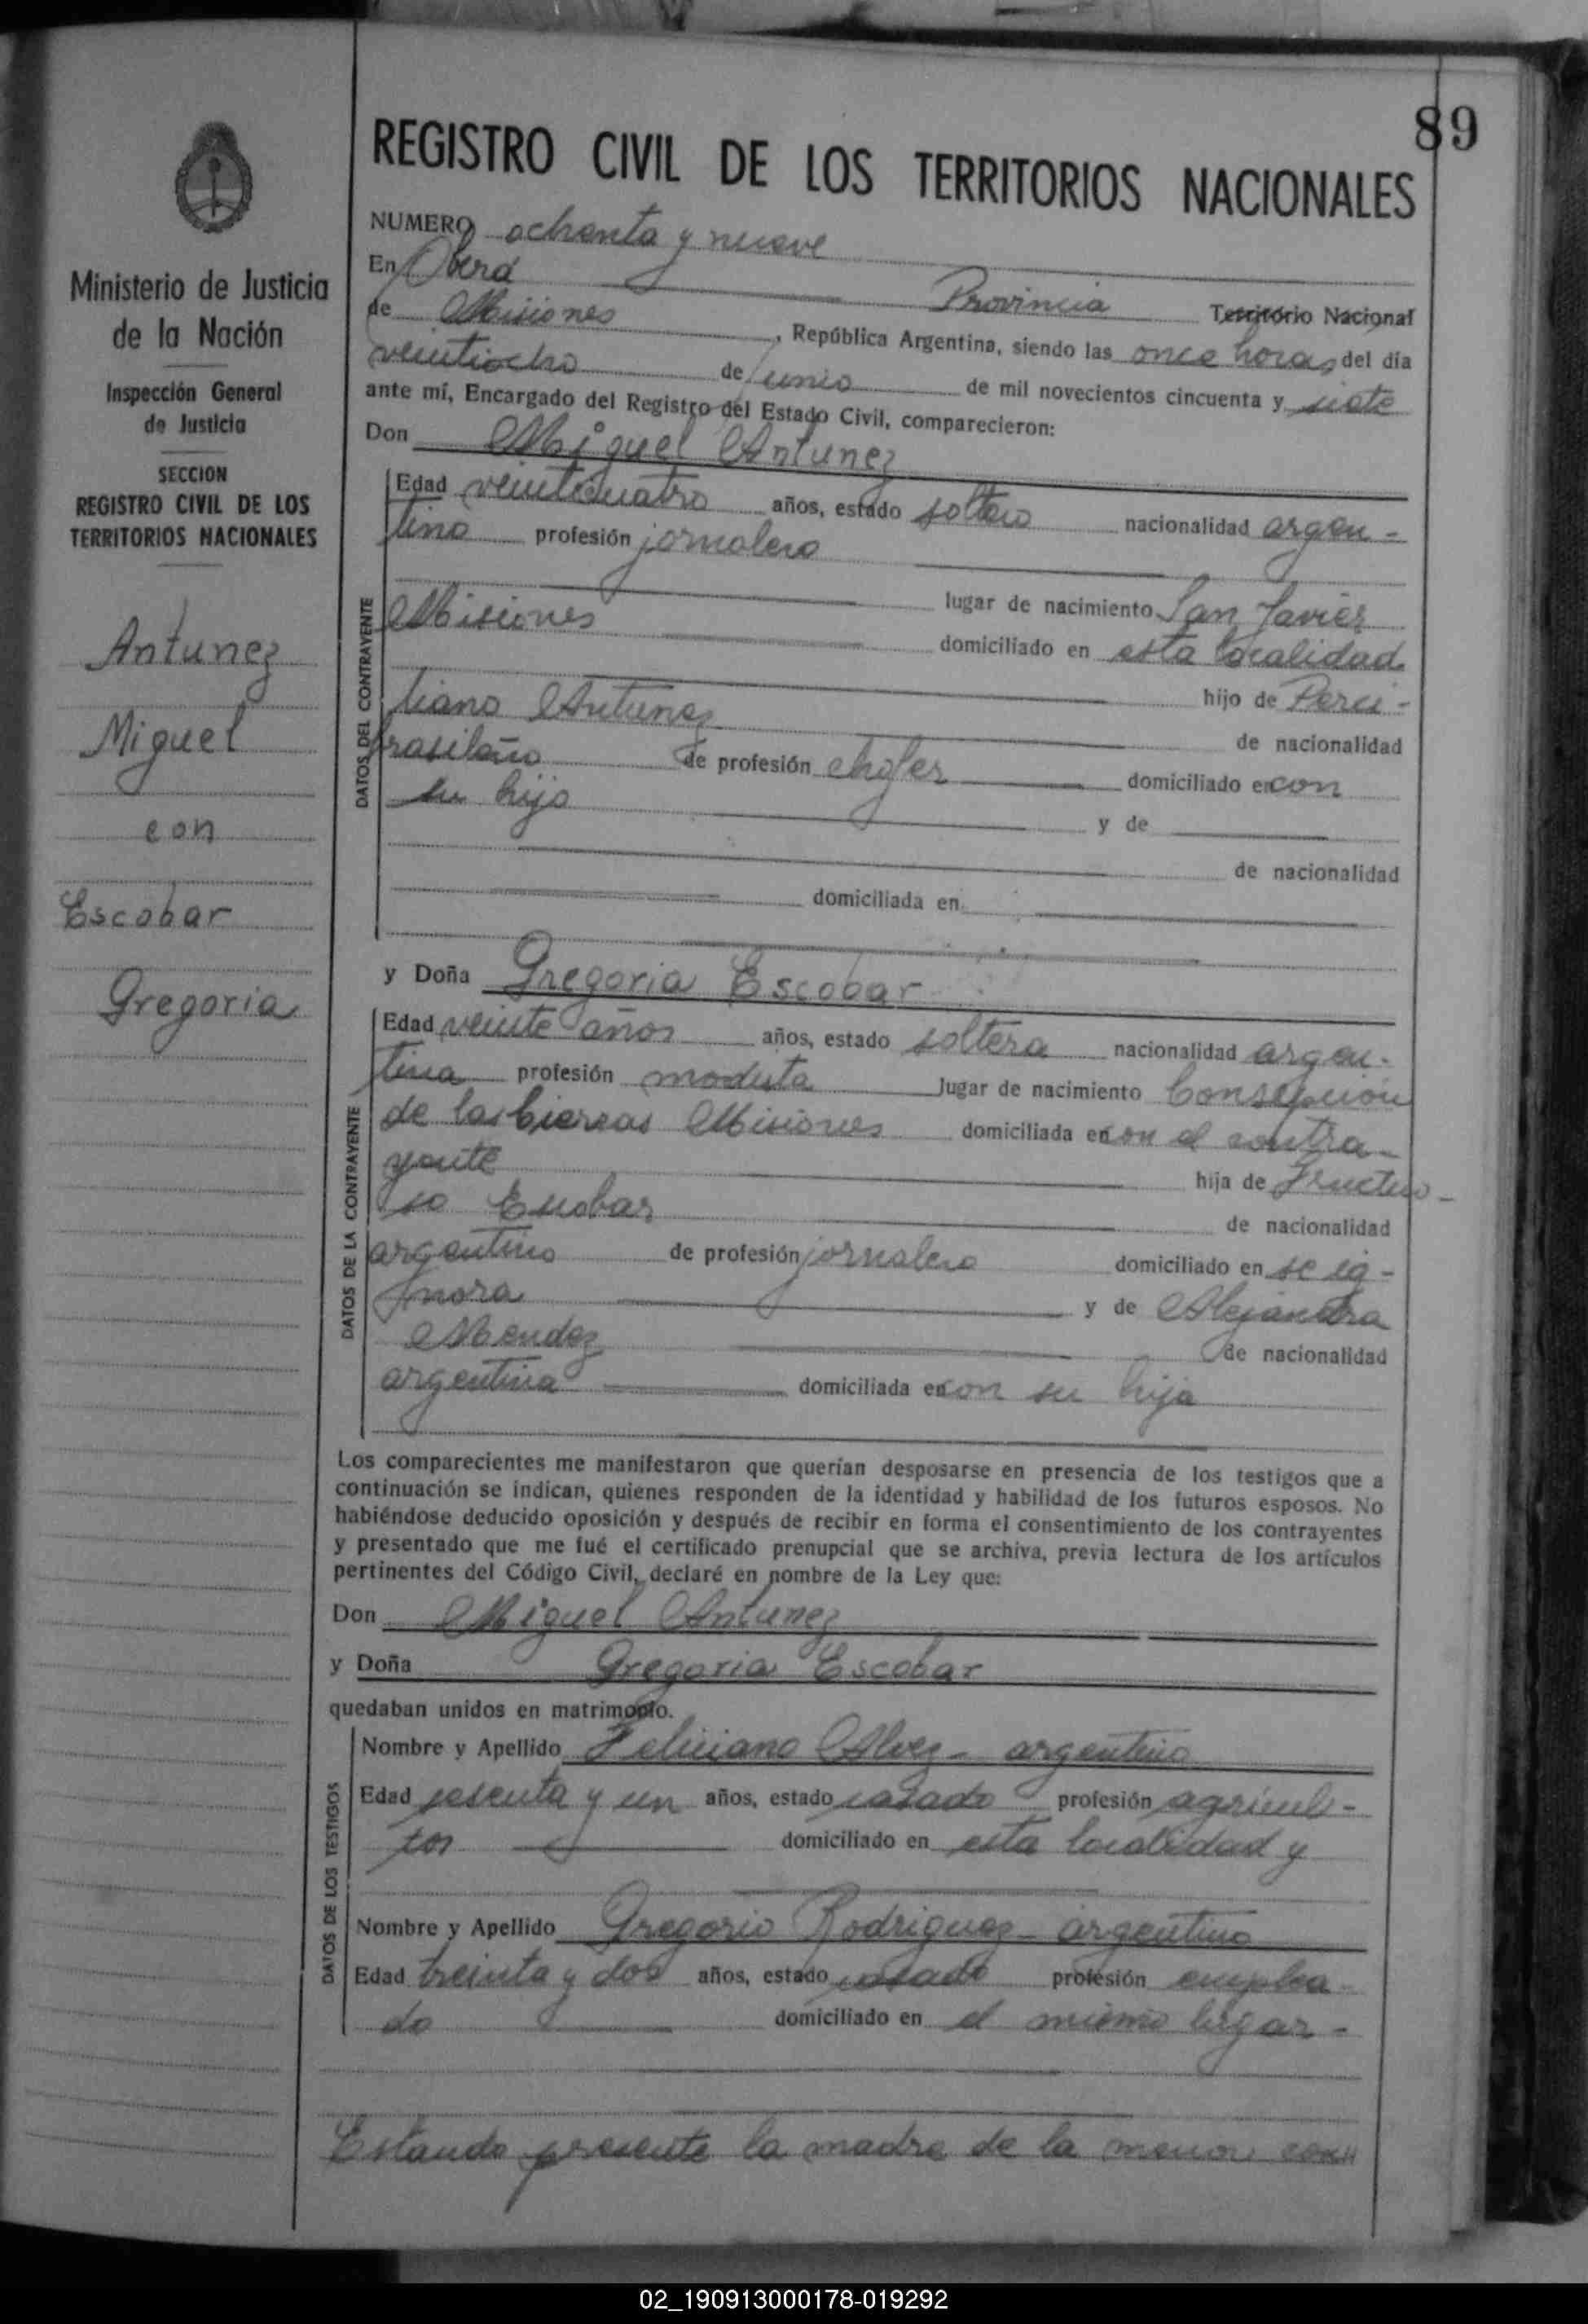 89
REGISTRO CIVIL DE LOS TERRITORIOS NACIONALES
NUMERO ochenta y nueve
En Oberá
Provincia Territorio Nacional
de Misiones, República Argentina, siendo las once horas del día
veintiocho de Junio de mil novecientos cincuenta y siete
ante mí, Encargado del Registro del Estado Civil, comparecieron:
Don Miguel Antunez
Edad veinticuatro años, estado soltero nacionalidad argen-
tino profesión jornalero
lugar de nacimiento San Javier
Misiones domiciliado en esta localidad
hijo de
Antunez de nacionalidad
brasileño de profesión chofer domiciliado en con
su hijo y de
de nacionalidad
domiciliada en
y Doña Gregoria Escobar
Edad veinte años años, estado soltera nacionalidad argen-
tina profesión modista lugar de nacimiento Consepcion
de las Misiones domiciliada en con el contra-
yente hija de Fructuo-
so Escobar de nacionalidad
argentino de profesión jornalero domiciliado en se ig-
nora y de Alejandra
Mendez de nacionalidad
argentina domiciliada en con su hija
Los comparecientes me manifestaron que querían desposarse en presencia de los testigos que a
continuación se indican, quienes responden de la identidad y habilidad de los futuros esposos. No
habiéndose deducido oposición y después de recibir en forma el consentimiento de los contrayentes
y presentado que me fué el certificado prenupcial que se archiva, previa lectura de los artículos
pertinentes del Código Civil, declaré en nombre de la Ley que:
Don Miguel Antunez
y Doña Gregoria Escobar
quedaban unidos en matrimonio.
Nombre y Apellido Feliciano Alvez - argentino
Edad sesenta y un años, estado casado profesión agricul-
tor domiciliado en esta localidad y
Nombre y Apellido Gregorio Rodriguez - argentino
Edad treinta y dos años, estado casado profesión emplea-
do domiciliado en el mismo lugar -
Estando presente la madre de la menor
Ministerio de Justicia
de la Nación
Inspección General
de Justicia
SECCION
REGISTRO CIVIL DE LOS
TERRITORIOS NACIONALES
Antunez
Miguel
con
Escobar
Gregoria
DATOS DEL CONTRAYENTE
DATOS DE LA CONTRAYENTE
DATOS DE LOS TESTIGOS
02_190913000178-019292